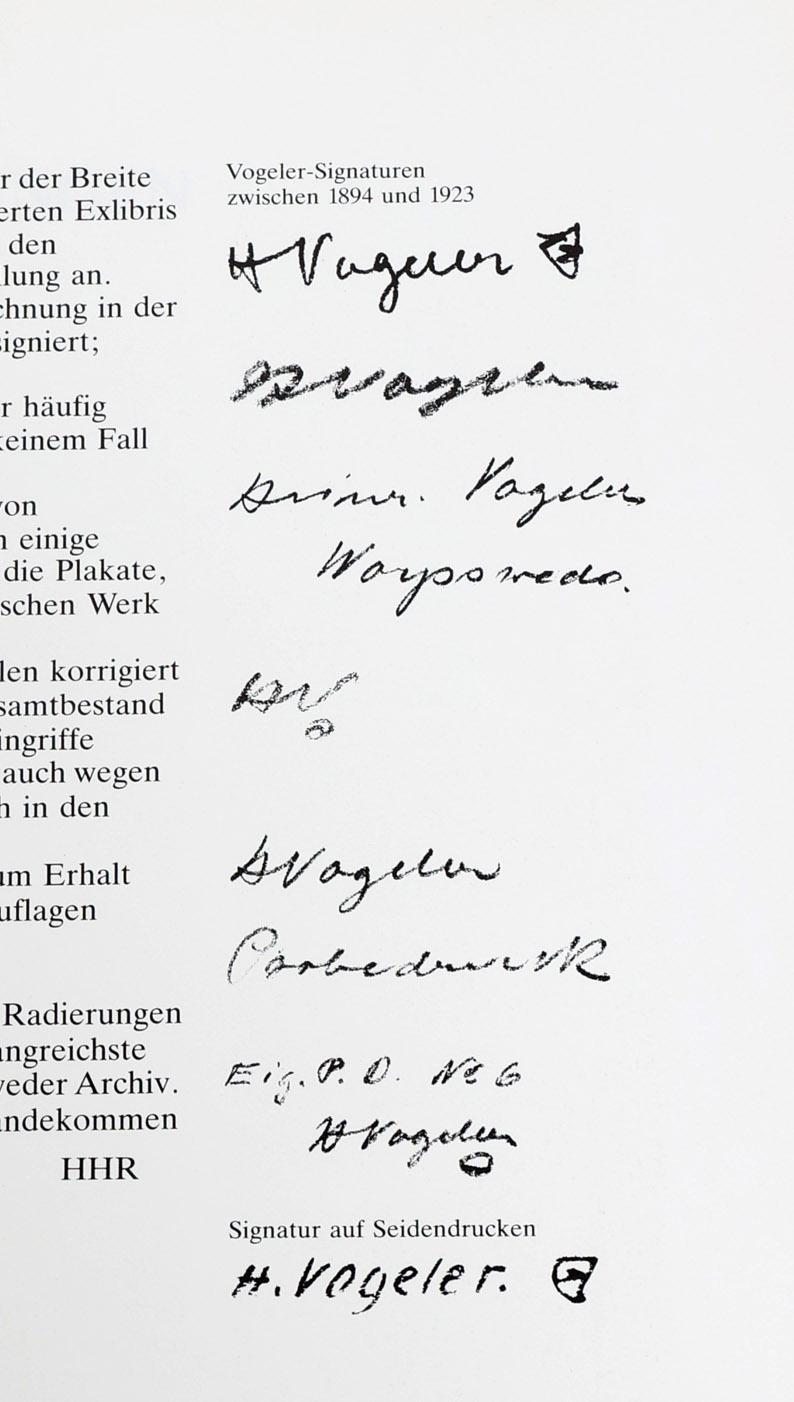 r der Breite
erten Exlibris
den
lung an.
chnung in der
signiert;
r häufig
keinem Fall
von
n einige
die Plakate,
schen Werk
len korrigiert
samtbestand
ingriffe
auch wegen
h in den
um Erhalt
uflagen
Radierungen
angreichste
weder Archiv.
andekommen
HHR
Vogeler-Signaturen
zwischen 1894 und 1923
H Vogeler
HVogeler
Heinr. Vogeler
Worpswede.
HV
HVogeler
Probedruck
Eig. P. D. No 6
HVogeler
Signatur auf Seidendrucken
H. Vogeler.